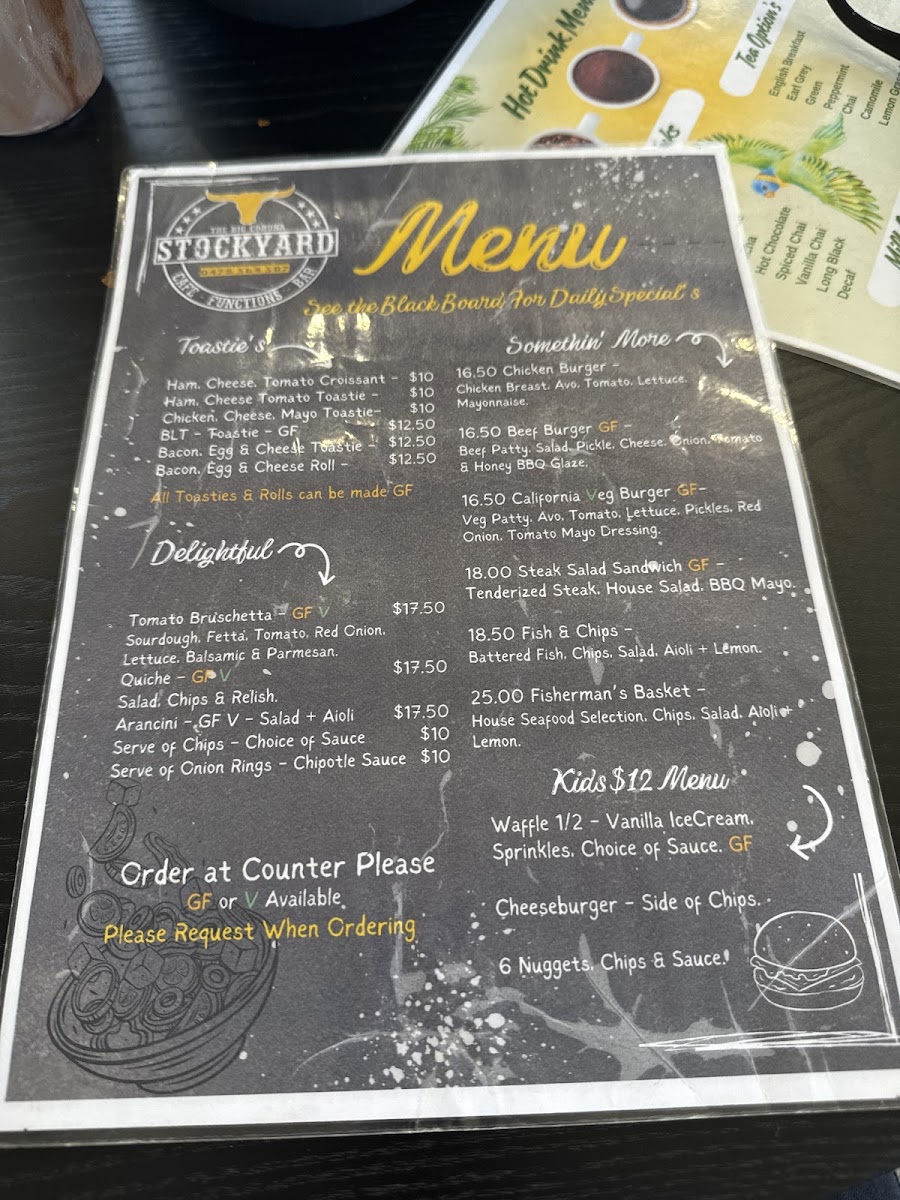 THE BIG CORONA
STOCKYARD
CAFE - FUNCTIONS - BAR
Menu
See the Black Board For Daily Special's
Toastie's
Ham, Cheese, Tomato Croissant - $10
Ham, Cheese Tomato Toastie - $10
Chicken, Cheese, Mayo Toastie- $10
BLT - Toastie - GF $12.50
Bacon, Egg & Cheese Toastie - $12.50
Bacon, Egg & Cheese Roll - $12.50
All Toasties & Rolls can be made GF
Delightful
Tomato Bruschetta - GF V $17.50
Sourdough, Fetta, Tomato, Red Onion,
Lettuce, Balsamic & Parmesan.
Quiche - GF V $17.50
Salad, Chips & Relish.
Arancini - GF V - Salad + Aioli $17.50
Serve of Chips - Choice of Sauce $10
Serve of Onion Rings - Chipotle Sauce $10
Order at Counter Please
GF or V Available,
Please Request When Ordering
Somethin' More
16.50 Chicken Burger -
Chicken Breast, Avo, Tomato, Lettuce,
Mayonnaise.
16.50 Beef Burger GF -
Beef Patty, Salad, Pickle, Cheese, Onion, Tomato
& Honey BBQ Glaze.
16.50 California Veg Burger GF-
Veg Patty, Avo, Tomato, Lettuce, Pickles, Red
Onion, Tomato Mayo Dressing.
18.00 Steak Salad Sandwich GF -
Tenderized Steak, House Salad, BBQ Mayo.
18.50 Fish & Chips -
Battered Fish, Chips, Salad, Aioli + Lemon.
25.00 Fisherman's Basket -
House Seafood Selection, Chips, Salad, Aioli +
Lemon.
Kids $12 Menu
Waffle 1/2 - Vanilla IceCream,
Sprinkles, Choice of Sauce. GF
Cheeseburger - Side of Chips.
6 Nuggets, Chips & Sauce.
Hot Drink Menu
Tea Option's
English Breakfast
Earl Grey
Green
Peppermint
Chai
Camomile
Lemon
Hot Chocolate
Spiced Chai
Vanilla Chai
Long Black
Decaf